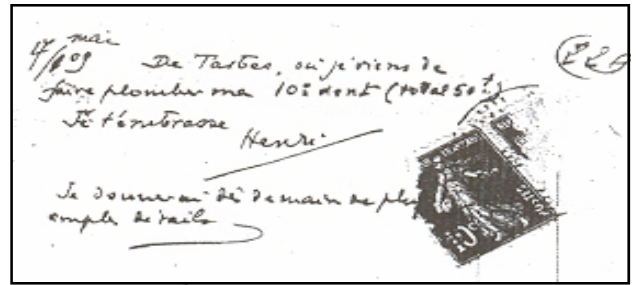 17 mai
/09 De Tarbes, où je viens de
faire plomber ma 10e dent (total 50f)
Je t'embrasse
Henri
Je donnerai dès demain de plus
amples détails